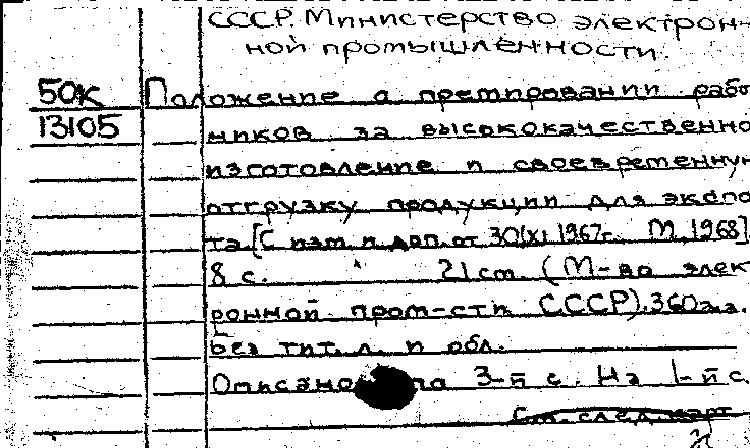 СССР. Министерство электрон-
ной промышленности.
50к Положение о премировании рабо
13105 ников за высококачественно
изготовление и своевременную
отгрузку продукции для экспо
та. [С изм. и доп. от 30/XI 1967г. М. 1968]
8 с. 21 см. (М-во элек
ронной пром-сти СССР). 360 экз.
Без тит. л. и обл.
Описано по 3-й с. На 1-й с.
См. след. карт.